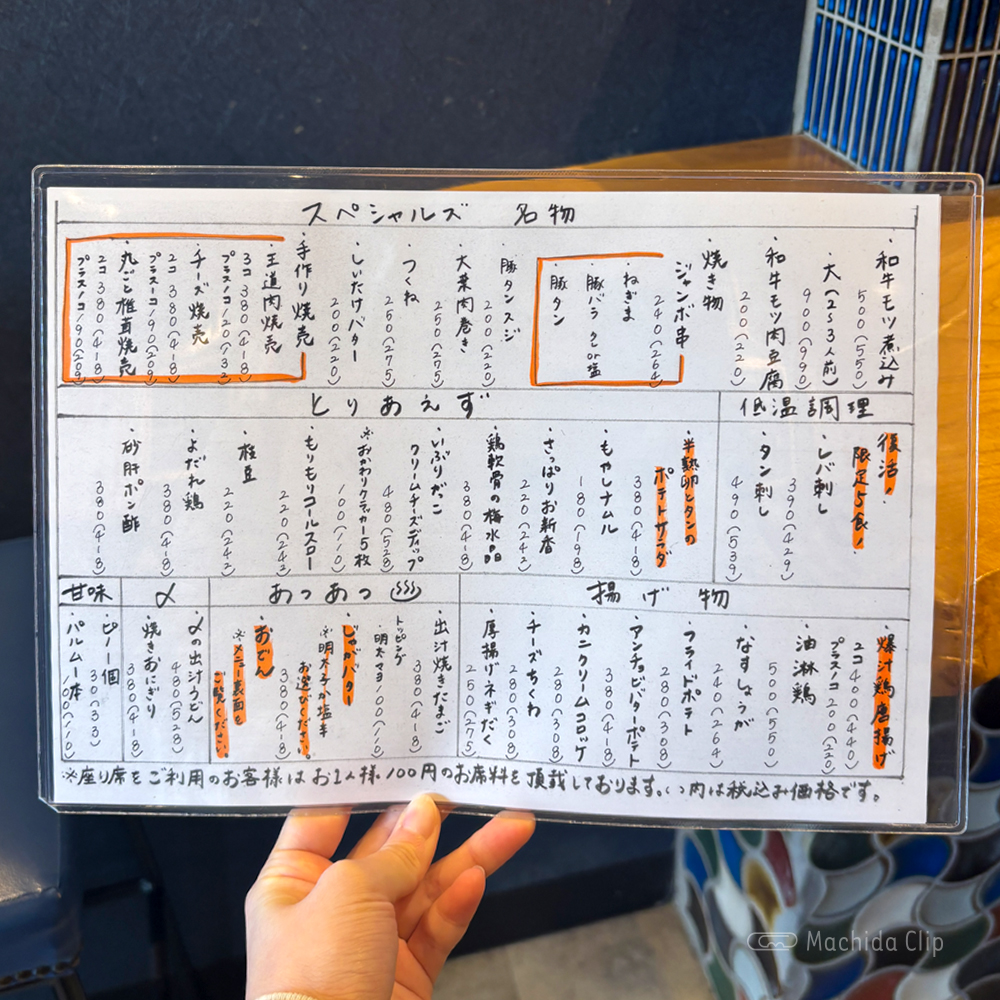 スペシャルズ 名物
・和牛モツ煮込み
500(550)
・大(2〜3人前)
900(990)
・和牛モツ肉豆腐
200(220)
・焼き物
ジャンボ串
240(264)
・ねぎま
・豚バラ タレor塩
・豚タン
・豚タンスジ
200(220)
・大葉肉巻き
250(275)
・つくね
250(275)
・しいたけバター
200(220)
・手作り焼売
・王道肉焼売
3コ 380(418)
プラス1コ 120(132)
・チーズ焼売
2コ 380(418)
プラス1コ 190(209)
・丸ごと椎茸焼売
2コ 380(418)
プラス1コ 190(209)
低温調理
復活!
限定5食!
・レバ刺し
390(429)
・タン刺し
490(539)
とりあえず
・半熟卵とタンの
ポテトサラダ
380(418)
・もやしナムル
180(198)
・さっぱりお新香
220(242)
・鶏軟骨の梅水晶
380(418)
・いぶりがっこ
クリームチーズディップ
480(528)
※おかわりクラッカー5枚
100(110)
・もりもりコールスロー
220(242)
・枝豆
220(242)
・よだれ鶏
380(418)
・砂肝ポン酢
380(418)
揚げ物
・爆汁鶏唐揚げ
2コ 400(440)
プラス1コ 200(220)
・油淋鶏
500(550)
・なすしょうが
240(264)
・フライドポテト
280(308)
・アンチョビバターポテト
380(418)
・カニクリームコロッケ
280(308)
・チーズちくわ
280(308)
・厚揚げネギだく
250(275)
あつあつ
・出汁焼きたまご
380(418)
トッピング
明太マヨ 100(110)
・じゃがバター
※明太子か塩辛
お選びください。
380(418)
・おでん
※メニュー裏面を
ご覧ください。
〆
・〆の出汁うどん
480(528)
・焼きおにぎり
380(418)
甘味
・ピノ一個
30(33)
・パルム一本
100(110)
※座り席をご利用のお客様はお1人様100円のお席料を頂戴しております。( )内は税込み価格です。
Machida Clip